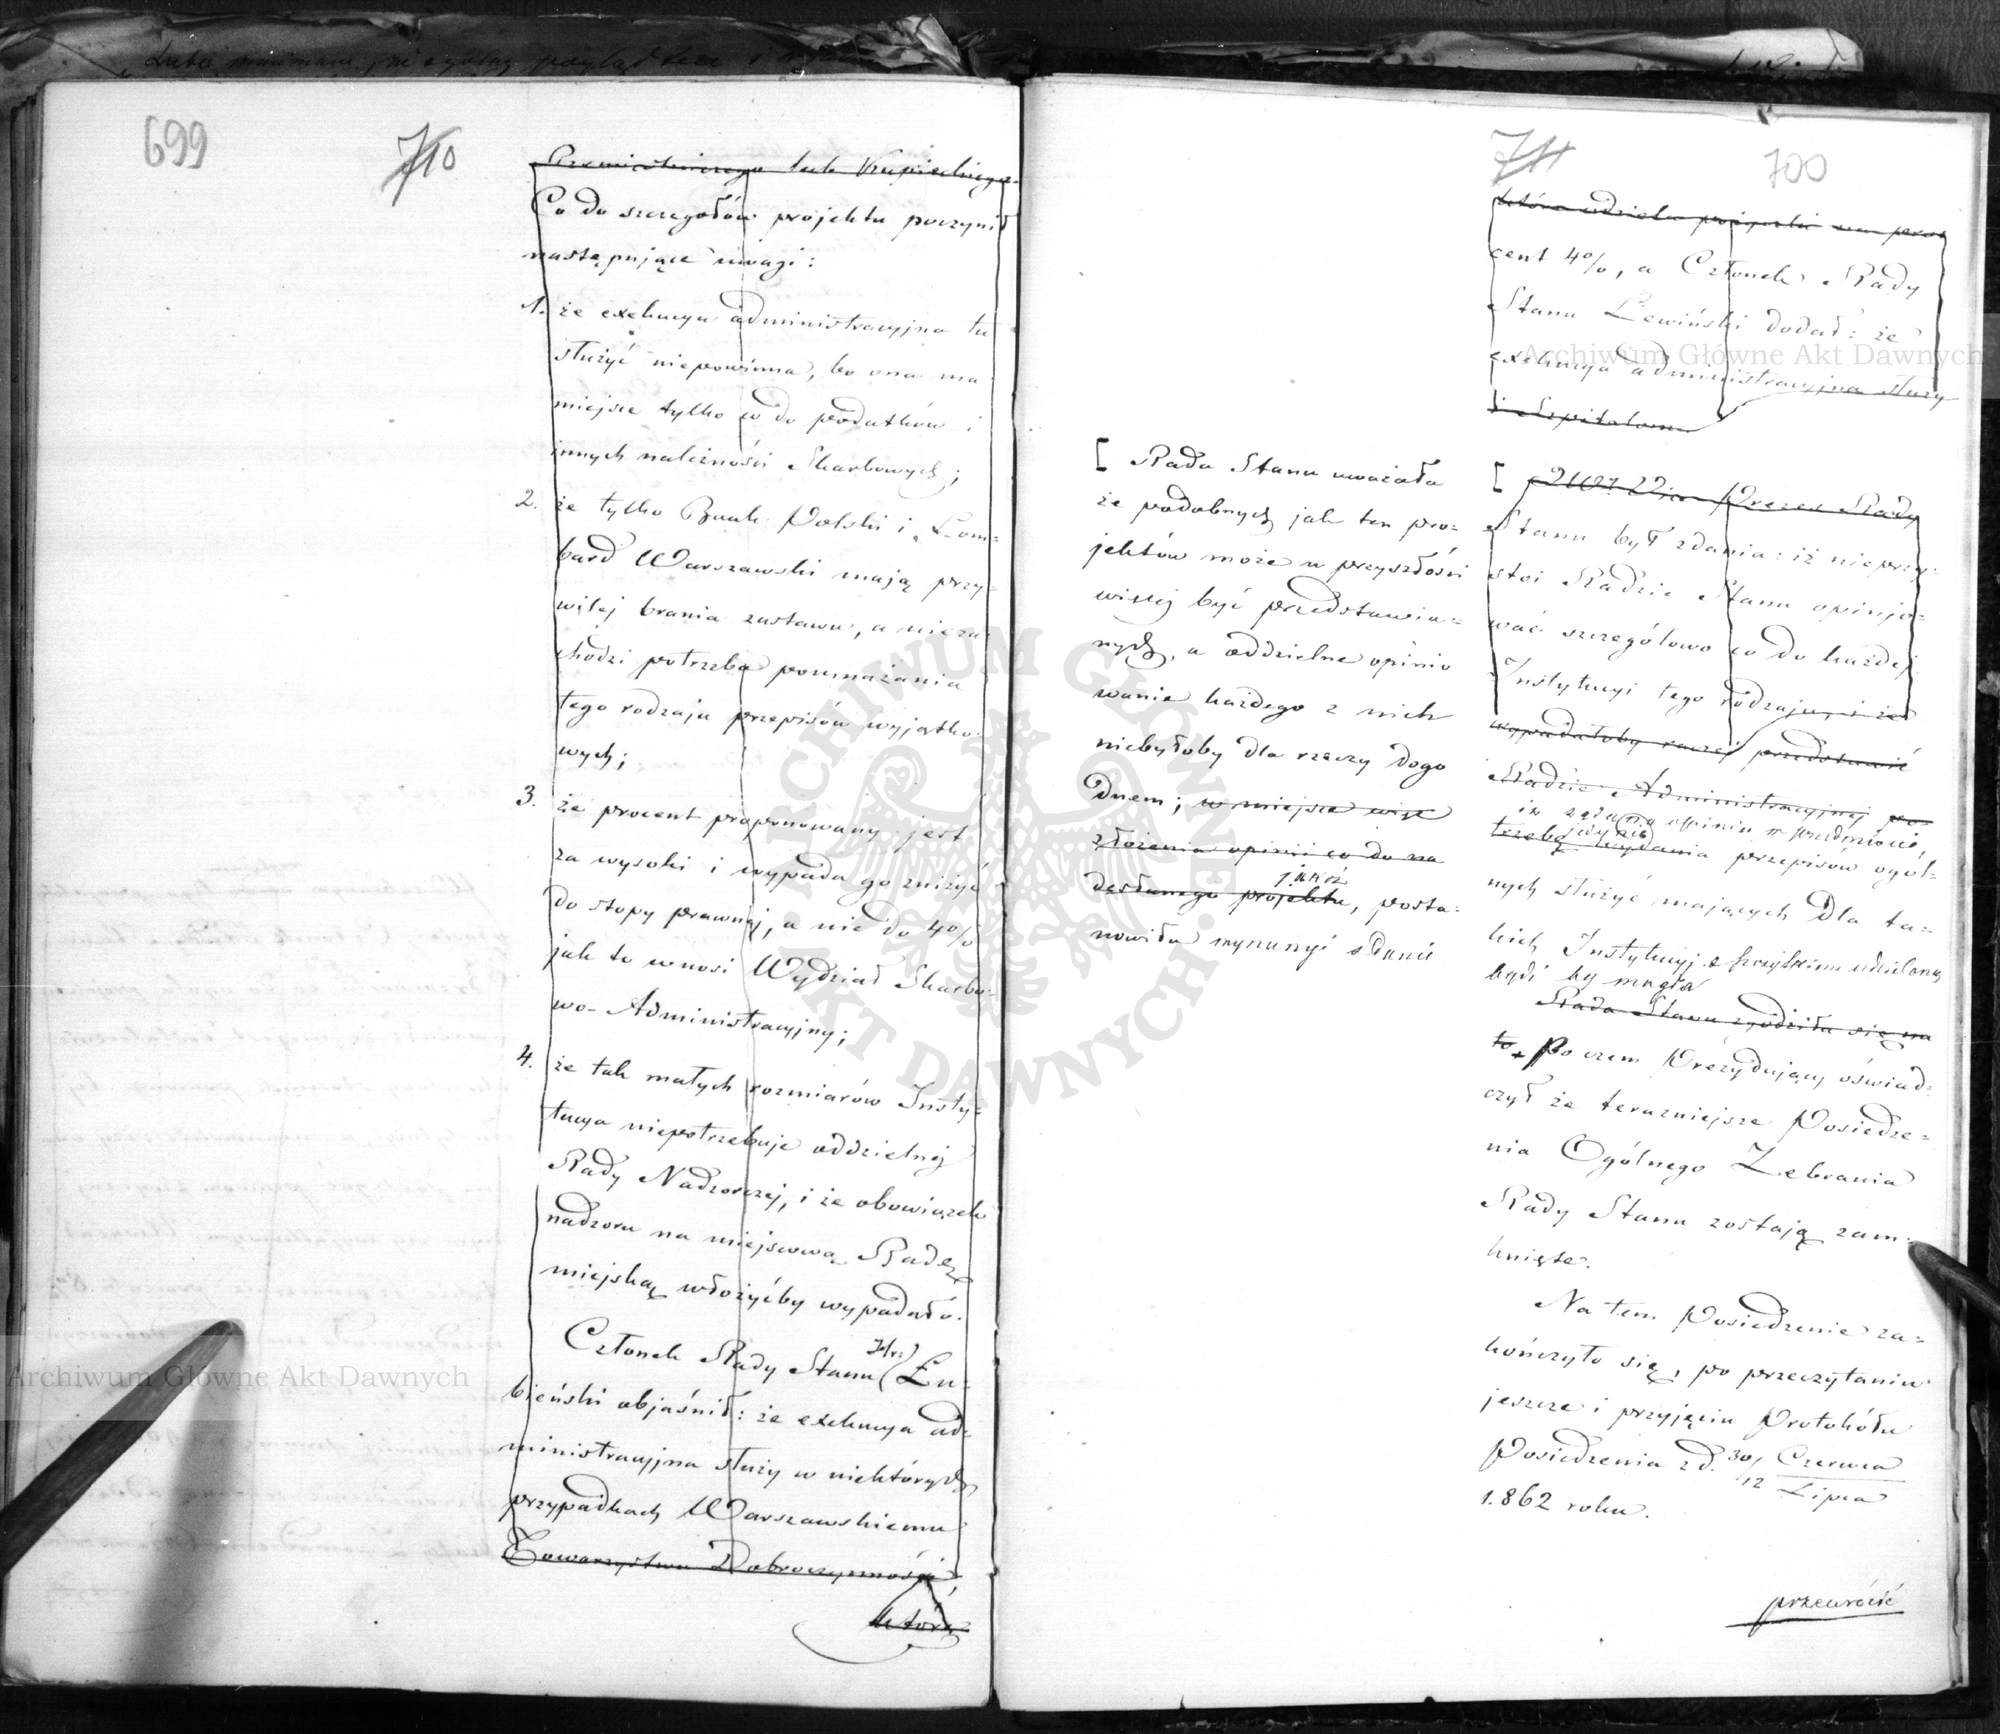 699
710
Przemisłowego lub Kupieckiego.
Co do szczegołów projektu poczynił
następujące uwagi:
1. że exekucya administracyjna tu
służyć niepowinna, bo ona ma
miejsce tylko co do podatków i
innych należności Skarbowych;
2. że tylko Bank Polski i Lom-
bard Warszawski mają przy-
wilej brania zastawu, a nieza-
chodzi potrzeba pomnażania
tego rodzaju przepisów wyjątko-
wych;
3. że procent proponowany jest
za wysoki i wypada go zniżyć
do stopy prawnej, a nie do 4%
jak to wnosi Wydział Skarbo-
wo-Administracyjny;
4. że tak małych rozmiarów Insty-
tucya niepotrzebuje oddzielnej
Rady Nadzorczej, i że obowiązek
nadzoru na miejscową Radę
miejską włożyćby wypadało.
Członek Rady Stanu (Hr:) Łu-
bieński objaśnił: że exekucya ad-
ministracyjna służy w niektórych
przypadkach Warszawskiemu
Towarzystwu Dobroczynności,
która
711
700
która udziela pożyczki na pro-
cent 4%, a Członek Rady
Stanu Lewiński dodał: że
exekucya administracyjna służy
i Szpitalom.
[ Rada Stanu uważała
że podobnych jak ten pro-
jektów może w przyszłości
więcej być przedstawia-
nych, a oddzielne opinio
wanie każdego z nich
niebyłoby dla rzeczy dogo
dnem; w miejsce więc
złożenia opinii co do na
desłanego projektu, posta-
nowiła wynurzyć zdanie
[ Prezes Rady
Stanu był zdania: iż nieprzy-
stoi Radzie Stanu opinjo-
wać szczegółowo co do każdej
Instytucyi tego rodzaju, i że
wypadałoby raczej przedstawić
Radzie Administracyjnej po-
iż żądana opinia w przedmiocie,
trzebę wydania przepisów ogól-
nych służyć mających dla ta-
kich Instytucyj z udzieloną
być by mogła
Rada Stanu zgodziła się na
to. Po czem Prezydujący oświad-
czył że terazniejsze Posiedze-
nia Ogólnego Zebrania
Rady Stanu zostają zam-
knięte.
Na tem Posiedzenie za-
kończyło się, po przeczytaniu
jeszcze i przyjęciu Protokółu
Posiedzenia z d. 30/12 Czerwca
Lipca
1.862 roku.
przewrócić
Archiwum Główne Akt Dawnych
Archiwum Główne Akt Dawnych
ARCHIWUM GŁÓWNE
AKT DAWNYCH